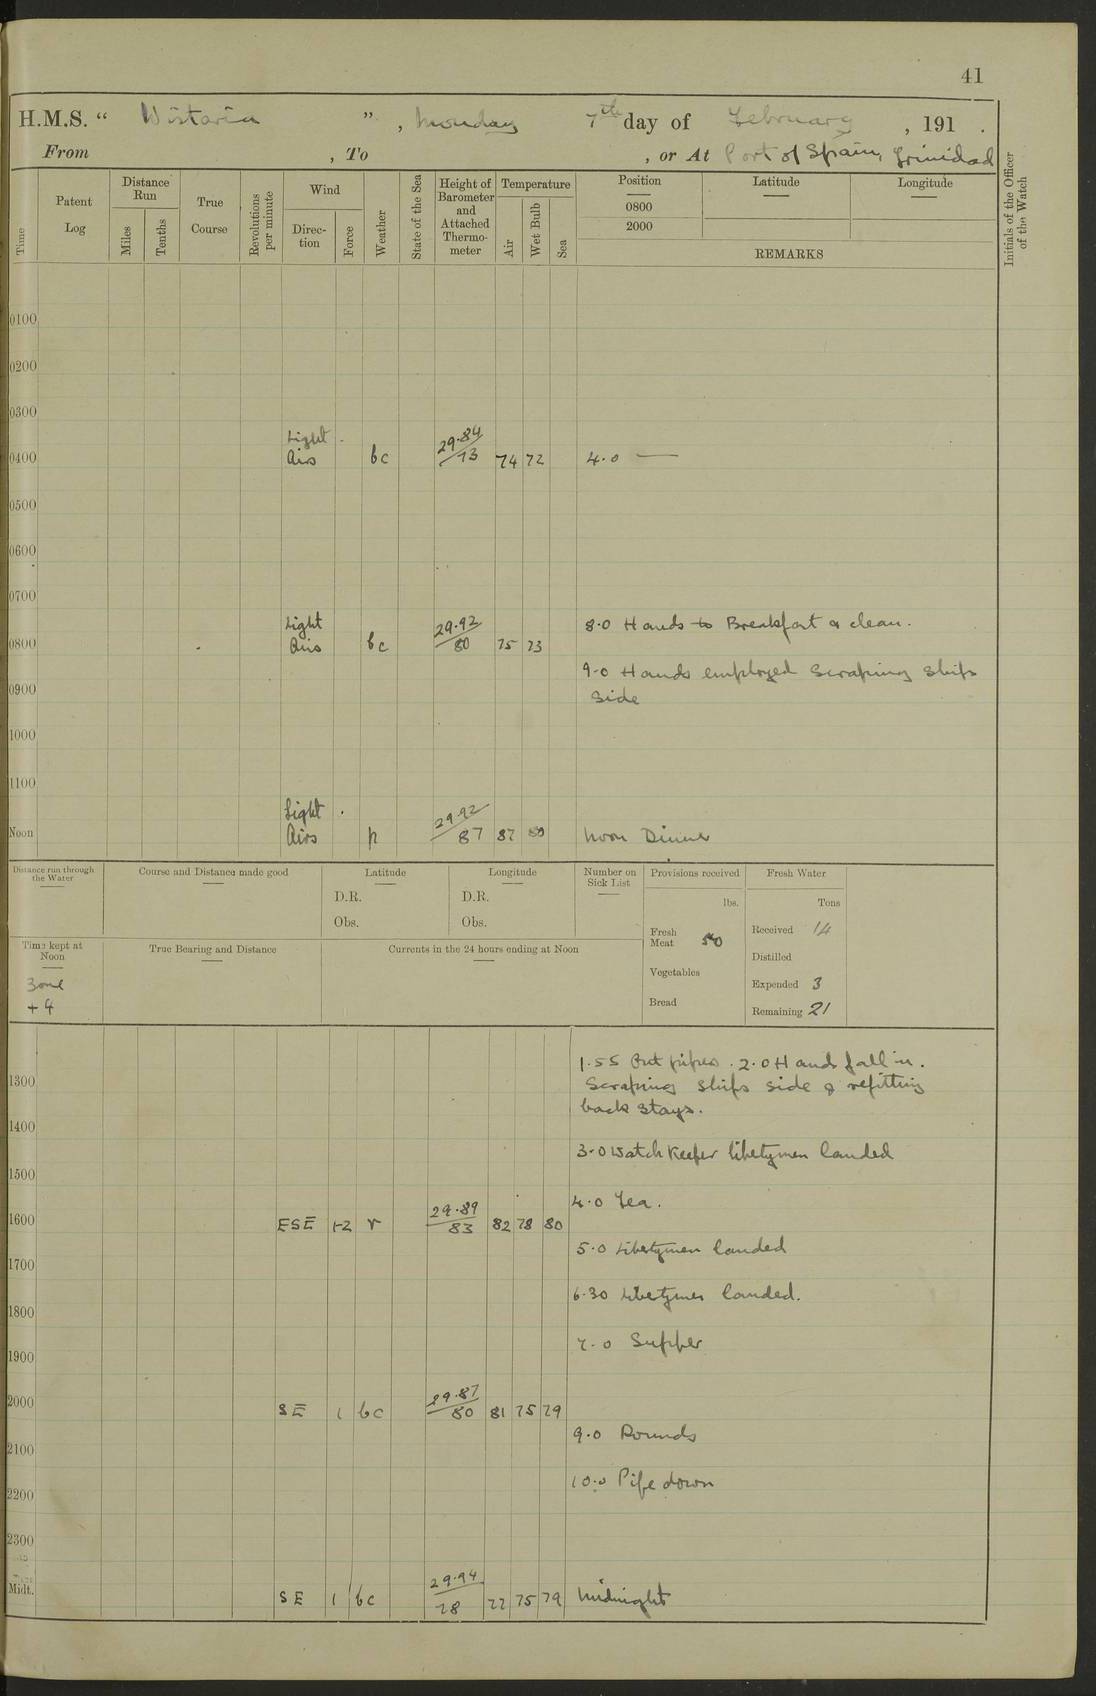 41
H.M.S. “ Wistaria ” , Monday 7th day of February , 191 .
From , To , or At Port of Spain, Trinidad
Time
Patent Log
Distance Run
Miles
Tenths
True Course
Revolutions per minute
Wind
Direction
Force
Weather
State of the Sea
Height of Barometer and Attached Thermometer
Temperature
Air
Wet Bulb
Sea
Position
0800
2000
Latitude
Longitude
REMARKS
Initials of the Officer of the Watch
0100
0200
0300
0400 Light Airs bc 29.84 73 74 72 4.0 —
0500
0600
0700
8.0 Hands to Breakfast & clean.
0800 Light Airs bc 29.92 80 75 73
9.0 Hands employed scraping ships
0900
side
1000
1100
Noon Light Airs p 29.92 87 87 80 Noon Dinner
Distance run through the Water
Course and Distance made good
Latitude
D.R.
Obs.
Longitude
D.R.
Obs.
Number on Sick List
Provisions received
lbs.
Fresh Meat 50
Vegetables
Bread
Fresh Water
Tons
Received 14
Distilled
Expended 3
Remaining 21
Time kept at Noon
Zone
+ 4
True Bearing and Distance
Currents in the 24 hours ending at Noon
1.55 Out pipes. 2.0 Hands fall in.
1300
Scraping ships side & refitting
back stays.
1400
3.0 Watch Keeper libertymen landed
1500
4.0 Tea.
1600 ESE 1-2 r 29.89 83 82 78 80
5.0 Libertymen landed
1700
6.30 Libertymen landed.
1800
7.0 Supper
1900
2000 SE 1 bc 29.87 80 81 75 79
9.0 Rounds
2100
10.0 Pipe down
2200
2300
Midt. SE 1 bc 29.94 78 77 75 79 Midnight